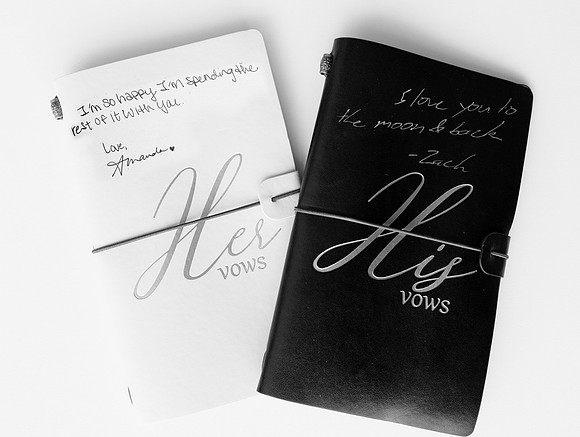 I'm so happy I'm spending the
rest of it with you.
Love,
Amanda
Her
VOWS
I love you to
the moon & back
- Zach
His
VOWS